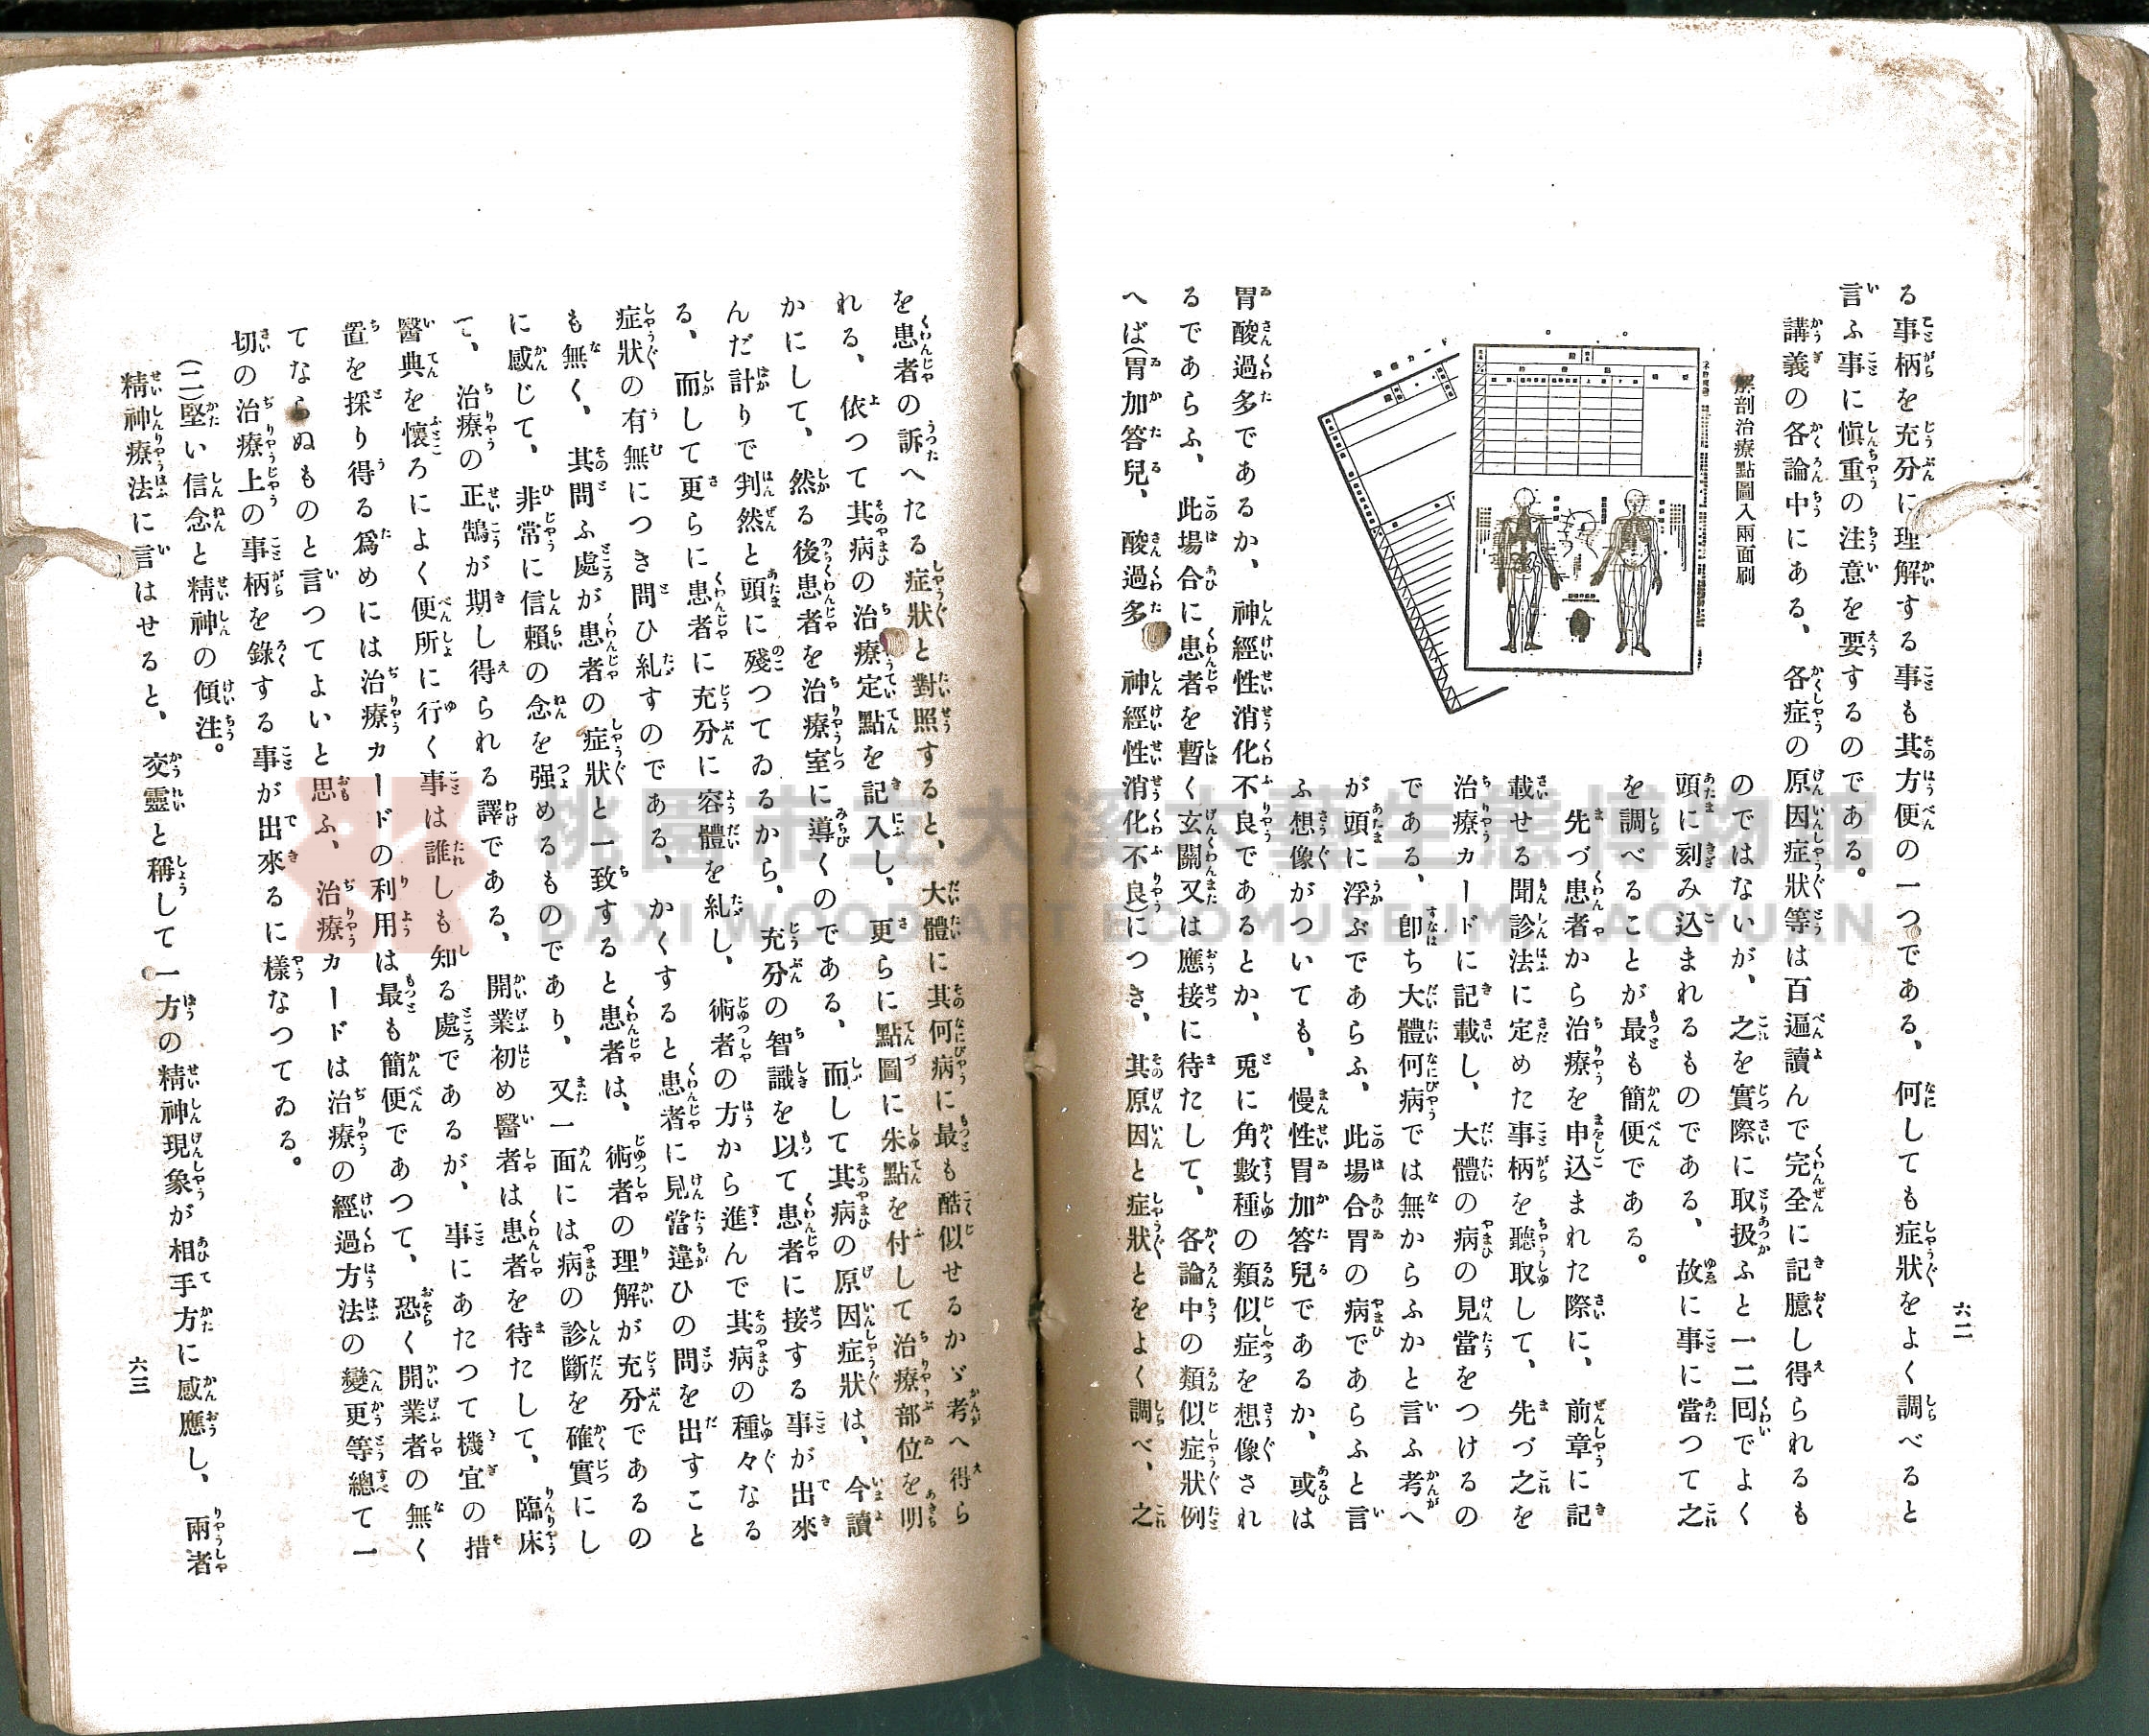 六二
る事柄を充分に理解する事も其方便の一つである、何しても症狀をよく調べると
言ふ事に愼重の注意を要するのである。
講義の各論中にある、各症の原因症狀等は百遍讀んで完全に記臆し得られるも
のではないが、之を實際に取扱ふと一二回でよく
頭に刻み込まれるものである、故に事に當つて之
を調べることが最も簡便である。
先づ患者から治療を申込まれた際に、前章に記
載せる聞診法に定めた事柄を聽取して、先づ之を
治療カードに記載し、大體の病の見當をつけるの
である、卽ち大體何病では無からふかと言ふ考へ
が頭に浮ぶであらふ、此場合胃の病であらふと言
ふ想像がついても、慢性胃加答兒であるか、或は
解剖治療點圖入兩面刷
胃酸過多であるか、神經性消化不良であるとか、兎に角數種の類似症を想像され
るであらふ、此場合に患者を暫く玄關又は應接に待たして、各論中の類似症狀例
へば(胃加答兒、酸過多、神經性消化不良)につき、其原因と症狀とをよく調べ、之
を患者の訴へたる症狀と對照すると、大體に其何病に最も酷似せるかゞ考へ得ら
れる、依つて其病の治療定點を記入し、更らに點圖に朱點を付して治療部位を明
かにして、然る後患者を治療室に導くのである、而して其病の原因症狀は、今讀
んだ計りで判然と頭に殘つてゐるから、充分の智識を以て患者に接する事が出來
る、而して更らに患者に充分に容體を糺し、術者の方から進んで其病の種々なる
症狀の有無につき問ひ糺すのである、かくすると患者に見當違ひの問を出すこと
も無く、其問ふ處が患者の症狀と一致すると患者は、術者の理解が充分であるの
に感じて、非常に信賴の念を强めるものであり、又一面には病の診斷を確實にし
て、治療の正鵠が期し得られる譯である、開業初め醫者は患者を待たして、臨床
醫典を懷ろによく便所に行く事は誰しも知る處であるが、事にあたつて機宜の措
置を採り得る爲めには治療カードの利用は最も簡便であつて、恐く開業者の無く
てならぬものと言つてよいと思ふ、治療カードは治療の經過方法の變更等總て一
切の治療上の事柄を錄する事が出來るに樣なつてゐる。
(二)堅い信念と精神の傾注。
精神療法に言はせると、交靈と稱して一方の精神現象が相手方に感應し、兩者
六三
桃園市立大溪木藝生態博物館
DAXI WOOD ART ECOMUSEUM, TAOYUAN